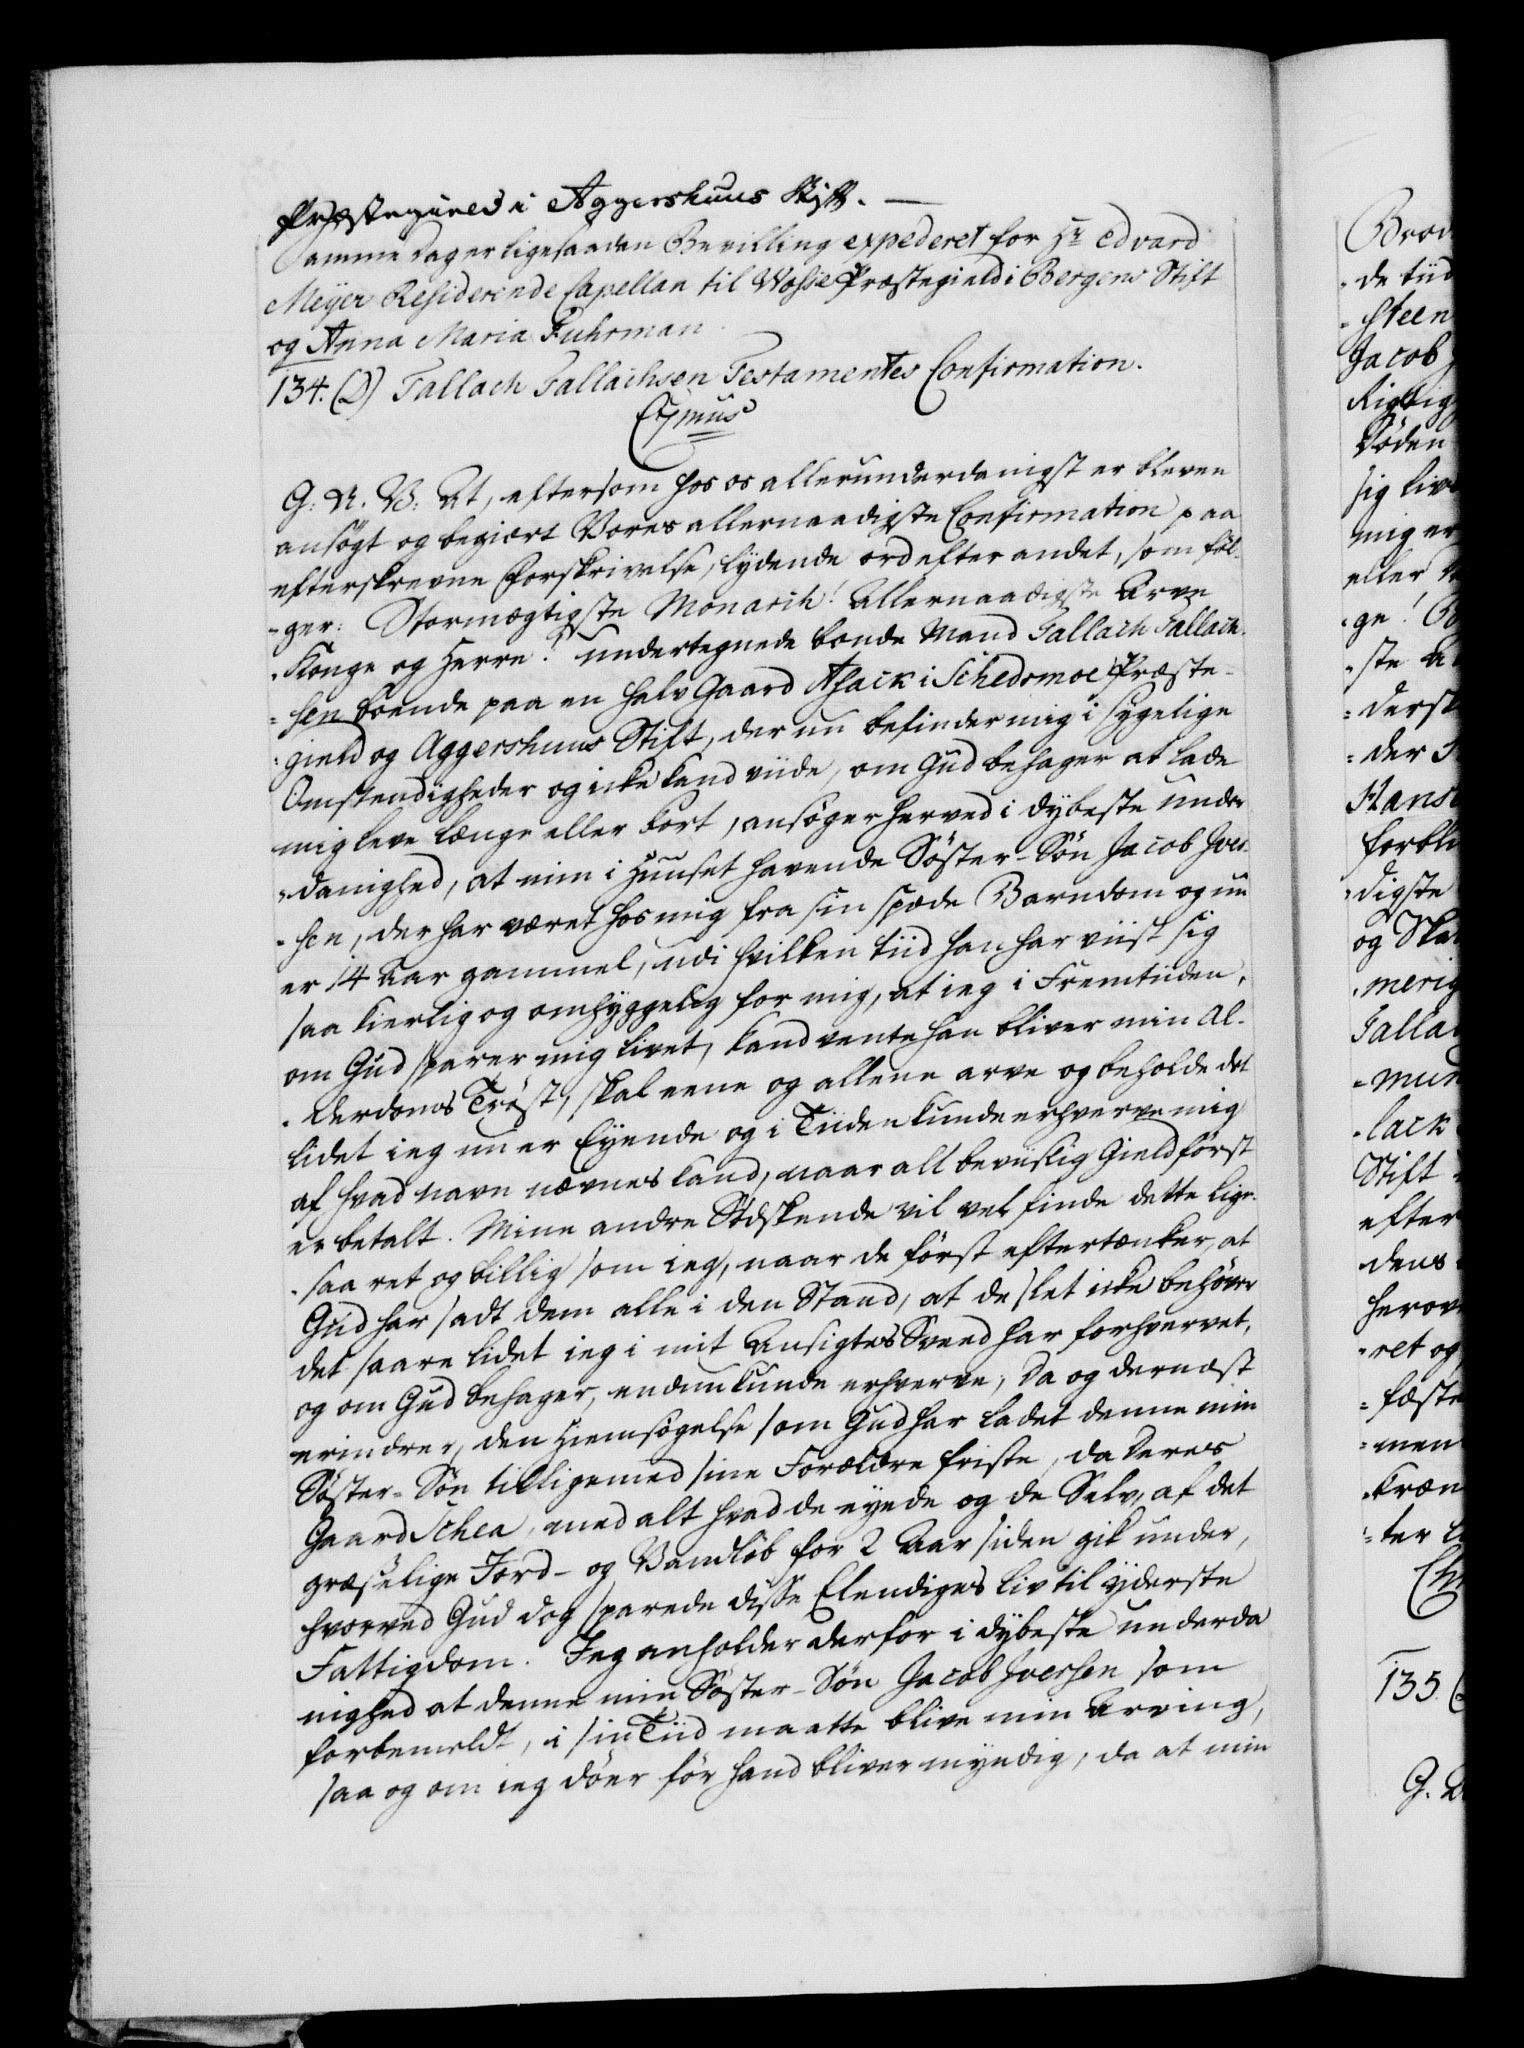 Præstegield i Aggershuus Stift.
Samme Dag er ligesaadan Bevilling expederet for Hr Edvard
Meyer Residerende Capellan til Wosse Præstegield i Bergens Stift
og Anna Maria Fuhrman.
134. (D) Tallach Tallachsen Testamentes Confirmation.
G. A. V. At, eftersom hos os allerunderdanigst er bleven
ansøgt og begiært Vores allernaadigste Confirmation paa
efterskrevne Forskrivelse, lydende ord efter andet, som føl-
-ger: Stormægtigste Monarch! Allernaadigste Arve
-Konge og Herre! undertegnede bonde Mand Tallach Tallach-
-sen boende paa en halv Gaard Asack i Schedsmoe Præste-
-gield og Aggershuus Stift, der nu befinder mig i sygelige
Omstendigheder og icke kand viide, om Gud behager at lade
mig leve længe eller kort, ansøger herved i dybeste under
-danighed, at min i Huuset havende Søster-Søn Jacob Iver-
-sen, der har været hos mig fra sin spæde Barndom og nu
er 14 Aar gammel, udi hvilken tiid han har viist sig
saa kierlig og omhyggelig for mig, at ieg i Fremtiiden,
om Gud sparer mig livet, kand vente han bliver min Al-
-derdoms Trøst, skal eene og allene arve og beholde det
lidet ieg nu er Eyende og i Tiiden kunde erhverve mig
af hvad navn nævnes kand, naar all beviislig Gield først
er betalt. Mine andre Sødskende vil vel finde dette lige-
-saa ret og billig som ieg, naar de først eftertænker, at
Gud har sadt dem alle i den Stand, at de slet icke behøver
det saare lidet ieg i mit Ansigtes Sveed har forhvervet,
og om Gud behager, endnu kunde erhverve, da og dernæst
erindrer, den Hiemsøgelse som Gud har ladet denne min
Søster-Søn tilligemed sine Forældre friste, da deres
Gaard Schea, med alt hvad de eyede og de Selv, af det
græselige Jord- og Vandløb for 2 Aar siden gik under,
hvorved Gud dog sparede disse Elendiges liv til yderste
Fattigdom. Jeg anholder derfor i dybeste underda
nighed at denne min Søster-Søn Jacob Iversen som
forbemeldt, i sin Tiid maatte blive min Arving,
saa og om ieg döer før hand bliver myndig, da at min
Brod
-de tiid
-steen
Jacob
Rigtig
Døden
sig liv
mig er
eller
-ge! 
-ste A
-derst
-der
Hans
forbli
-digste
og Ska
-merig
Talla
-mun
-lack
Stift
efter
dens
herov
-ret og
-fæste
-men
-kræn
-ter
135.
G. A